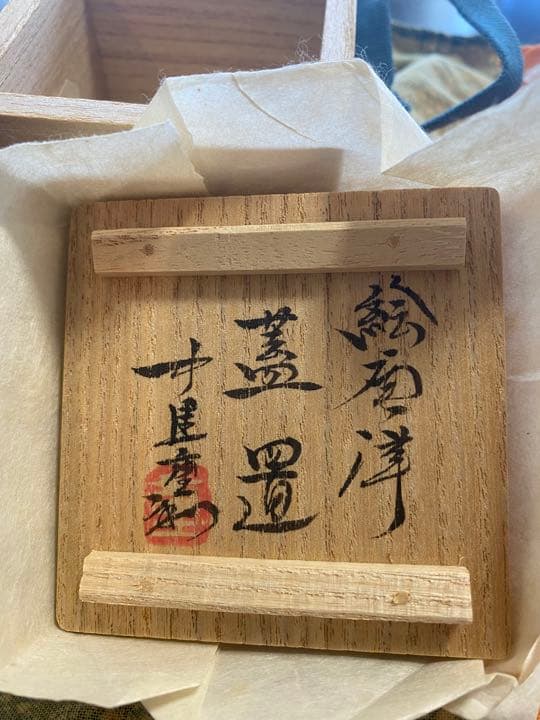 絵唐津
蓋置
中里重利